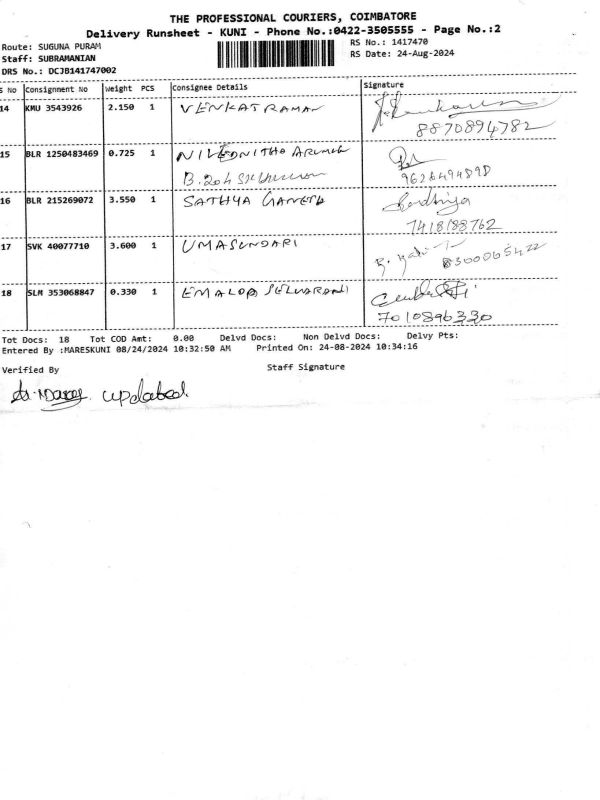 THE PROFESSIONAL COURIERS, COIMBATORE
Delivery Runsheet - KUNI - Phone No.:0422-3505555 - Page No.:2
Route: SUGUNA PURAM
RS No.: 1417470
Staff: SUBRAMANIAN
RS Date: 24-Aug-2024
DRS No.: DCJB141747002
S No Consignment No Weight PCS Consignee Details Signature
14 KMU 3543926 2.150 1 VENKATRAMAN
8870894782
15 BLR 1250483469 0.725 1
9626494890
16 BLR 215269072 3.550 1 SATHYA
7418188762
17 SVK 40077710 3.600 1 UMASUNDARI
8300065422
18 SLM 353068847 0.330 1 SELVARANI
7010896330
Tot Docs: 18 Tot COD Amt: 0.00 Delvd Docs: Non Delvd Docs: Delvy Pts:
Entered By :MARESKUNI 08/24/2024 10:32:50 AM Printed On: 24-08-2024 10:34:16
Verified By Staff Signature
updated